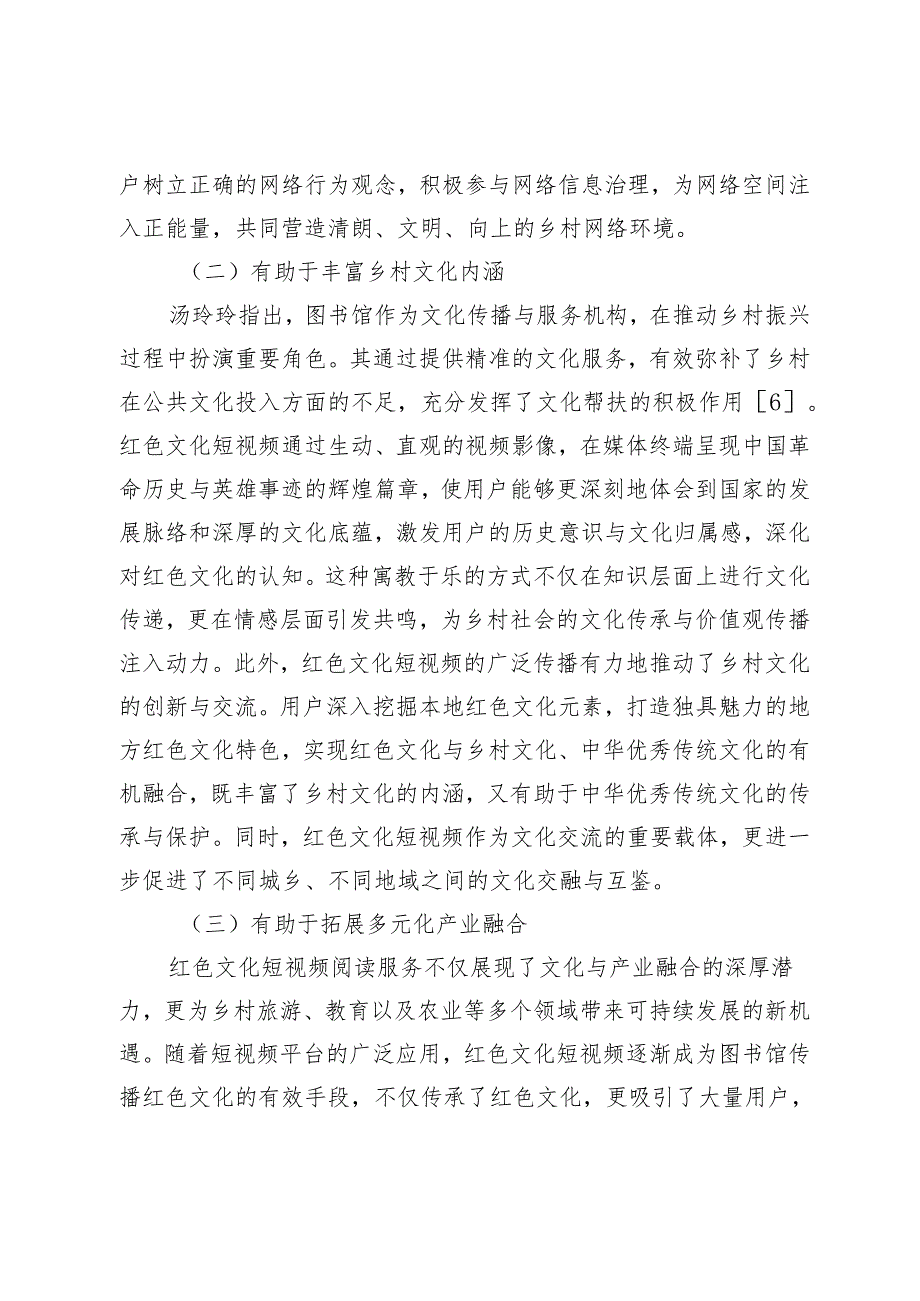 户树立正确的网络行为观念，积极参与网络信息治理，为网络空间注
入正能量，共同营造清朗、文明、向上的乡村网络环境。
（二）有助于丰富乡村文化内涵
汤玲玲指出，图书馆作为文化传播与服务机构，在推动乡村振兴
过程中扮演重要角色。其通过提供精准的文化服务，有效弥补了乡村
在公共文化投入方面的不足，充分发挥了文化帮扶的积极作用［6］。
红色文化短视频通过生动、直观的视频影像，在媒体终端呈现中国革
命历史与英雄事迹的辉煌篇章，使用户能够更深刻地体会到国家的发
展脉络和深厚的文化底蕴，激发用户的历史意识与文化归属感，深化
对红色文化的认知。这种寓教于乐的方式不仅在知识层面上进行文化
传递，更在情感层面引发共鸣，为乡村社会的文化传承与价值观传播
注入动力。此外，红色文化短视频的广泛传播有力地推动了乡村文化
的创新与交流。用户深入挖掘本地红色文化元素，打造独具魅力的地
方红色文化特色，实现红色文化与乡村文化、中华优秀传统文化的有
机融合，既丰富了乡村文化的内涵，又有助于中华优秀传统文化的传
承与保护。同时，红色文化短视频作为文化交流的重要载体，更进一
步促进了不同城乡、不同地域之间的文化交融与互鉴。
（三）有助于拓展多元化产业融合
红色文化短视频阅读服务不仅展现了文化与产业融合的深厚潜
力，更为乡村旅游、教育以及农业等多个领域带来可持续发展的新机
遇。随着短视频平台的广泛应用，红色文化短视频逐渐成为图书馆传
播红色文化的有效手段，不仅传承了红色文化，更吸引了大量用户，